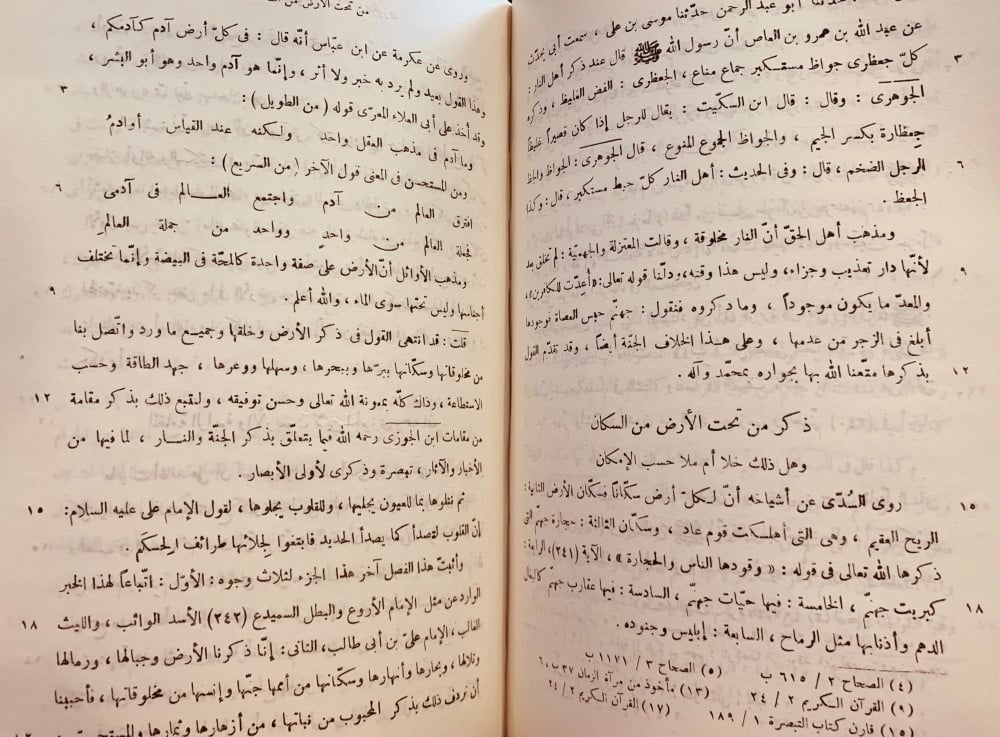 حدثنا أبو عبد الرحمن حدثنا موسى بن على ، سمعت أبى يحدث
عن عبد الله بن عمرو بن العاص أنّ رسول الله ﷺ قال عند ذكر أهل النار :
٣ كلّ جعظرى جواظ مستكبر جماع مناع ، الجعظرى : الفض الغليظ ، وذكره
الجوهرى : وقال : قال ابن السكّيت : يقال للرجل إذا كان قصيراً غليظاً
جِعظارة بكسر الجيم ، والجواظ الجموع المنوع ، قال الجوهرى : الجواظ
٦ الرجل الضخم ، قال : وفى الحديث : أهل النار كلّ جظ مستكبر ، قال : وكذا
الجعظ .
ومذهب أهل الحقّ أنّ النار مخلوقة ، وقالت المعتزلة والجهميّة : لم تخلق بعد
٩ لأنّها دار تعذيب وجزاء، وليس هذا وقته، ودلّنا قوله تعالى : « أُعِدّت للكافرين » ،
والمعدّ ما يكون موجوداً ، وما ذكروه فنقول : جهنّم حبس العصاة فوجودها
أبلغ فى الزجر من عدمها ، وعلى هذا الخلاف الجنّة أيضاً ، وقد تقدّم القول
١٢ بذكرها متّعنا الله بها بجواره بمحمّد وآله .
ذكر من تحت الأرض من السكان
وهل ذلك خلا أم ملا حسب الإمكان
١٥ روى السُدّى عن أشياخه أنّ لكلّ أرض سكّاناً فسكّان الأرض الثانية :
الريح العقيم ، وهى التى أهلكت قوم عاد ، وسكّان الثالثة : حجارة جهنّم التى
ذكرها الله تعالى فى قوله : « وقودها الناس والحجارة » ، الآية (٣٤١)، الرابعة :
١٨ كبريت جهنّم ، الخامسة : فيها حيّات جهنّم ، السادسة : فيها عقارب جهنّم كالبغال
الدهم وأذنابها مثل الرماح ، السابعة : إبليس وجنوده .
(٤) الصحاح ٢ / ٦١٥ ب (٥) الصحاح ٣ / ١١٧١ ب
(٩) القرآن الكريم ٢ / ٢٤ (١٣) مأخوذ من مرآة الزمان ٣٧ ب
(١٥) قارن كتاب التبصرة ١ / ١٨٩ (١٧) القرآن الكريم ٢ / ٢٤
من تحت الأرض من
وروى عن عكرمة عن ابن عبّاس أنّه قال : فى كلّ أرض آدم كآدمكم ،
وهذا القول بعيد ولم يرد به خبر ولا أثر ، وإنّما هو آدم واحد وهو أبو البشر ،
٣ وقد أخذ على أبى العلاء المعرّى قوله (من الطويل) :
وما آدم فى مذهب العقل واحد ولكنه عند القياس أوادمُ
ومن المستحسن فى المعنى قول الآخر (من السريع) :
٦ افترق العالم من آدم واجتمع العالم فى آدمى
فجملة العالم من واحد وواحد من جملة العالمِ
ومذهب الأوائل أنّ الأرض على صفة واحدة كالمحّة فى البيضة وإنّما يختلف
٩ أجناسها وليس تحتها سوى الماء ، والله أعلم .
قلت : قد انتهى القول فى ذكر الأرض وخلقها وجميع ما ورد واتّصل بنا
من مخلوقاتها وسكّانها ببرّها وبحرها ، وسهلها ووعرها ، جهد الطاقة وحسب
١٢ الاستطاعة ، وذاك كلّه بمعونة الله تعالى وحسن توفيقه ، ولنتبع ذلك بذكر مقامة
من مقامات ابن الجوزى رحمه الله فيما يتعلّق بذكر الجنّة والنار ، لما فيها من
الأخبار والآثار ، تبصرة وذكرى لأولى الأبصار .
١٥ ثم نتلوها بما للعيون يجليها ، وللقلوب يجلوها ، لقول الإمام على عليه السلام :
إنّ القلوب لتصدأ كما يصدأ الحديد فابتغوا لِجلائها طرائف الحِكَم .
وأثبتّ هذا الفصل آخر هذا الجزء لثلاث وجوه : الأوّل : اتّباعاً لهذا الخبر
١٨ الوارد عن مثل الإمام الأروع والبطل السميدع (٣٤٢) الأسد الواثب ، والليث
الغالب ، الإمام علىّ بن أبى طالب، الثانى : إنّا ذكرنا الأرض وجبالها ، ورمالها
وتلالها ، وبحارها وأنهارها وسكّانها من أممها جنّها وإنسها من مخلوقاتها ، فأحببنا
أن نردف ذلك بذكر المحبوب من نباتها ، من أزهارها وثمارها